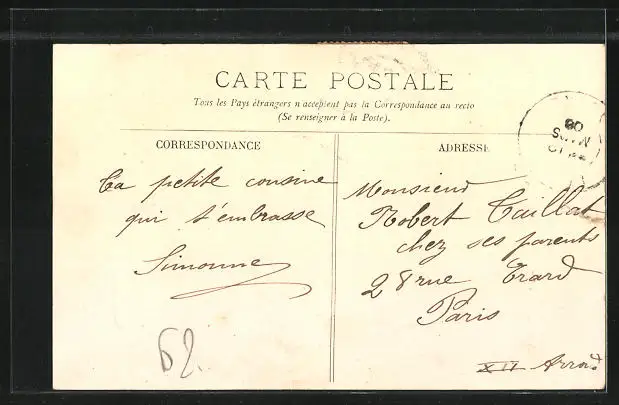 CARTE POSTALE
Tous les Pays étrangers n'acceptent pas la Correspondance au recto
(Se renseigner à la Poste).
CORRESPONDANCE
Ta petite cousine
qui t'embrasse
Simonne
62.
ADRESSE
Monsieur
Robert Taillat
chez ses parents
28 rue Erard
Paris
XII Arrond